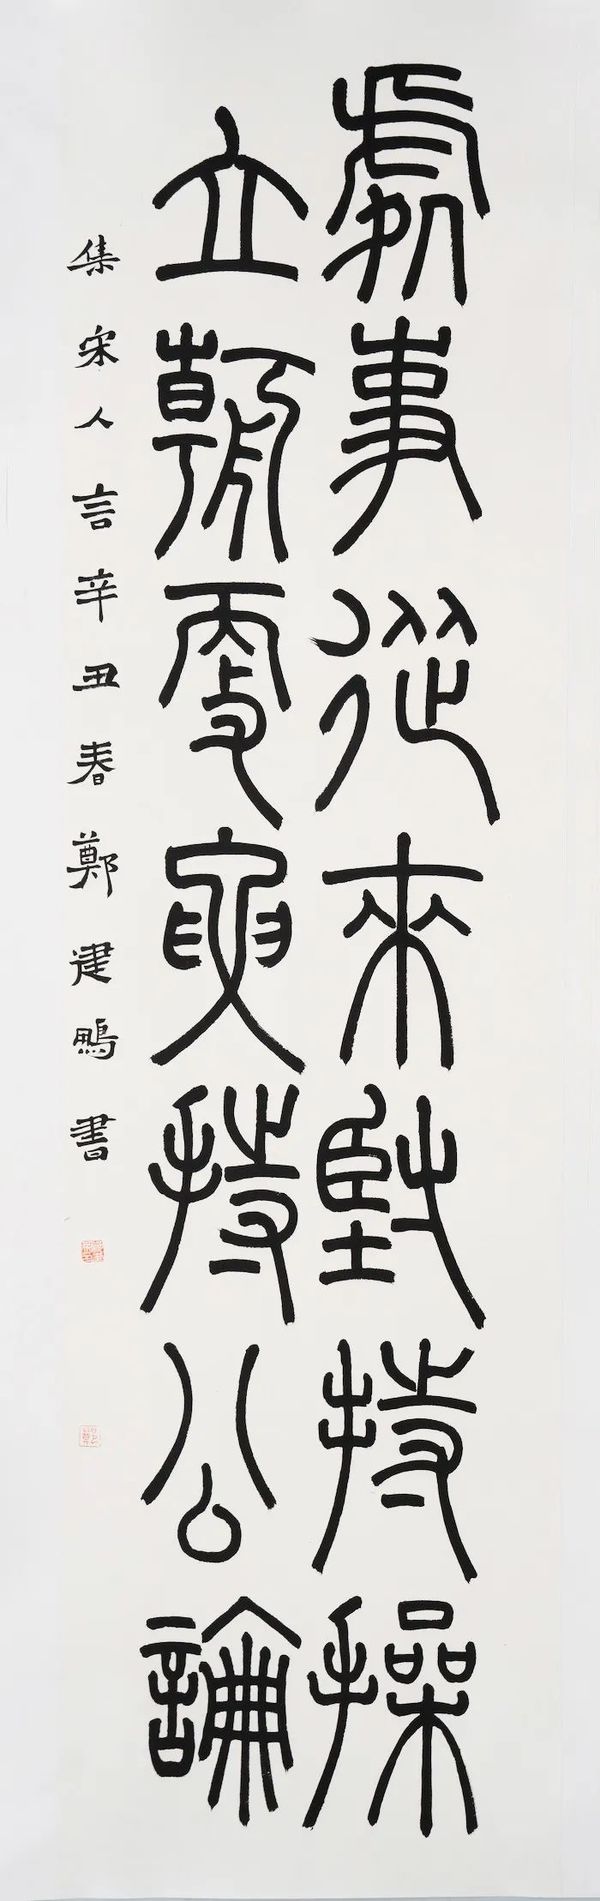 處事從來堅持操
立朝更要持公論
集宋人言辛丑春鄭建鵬書